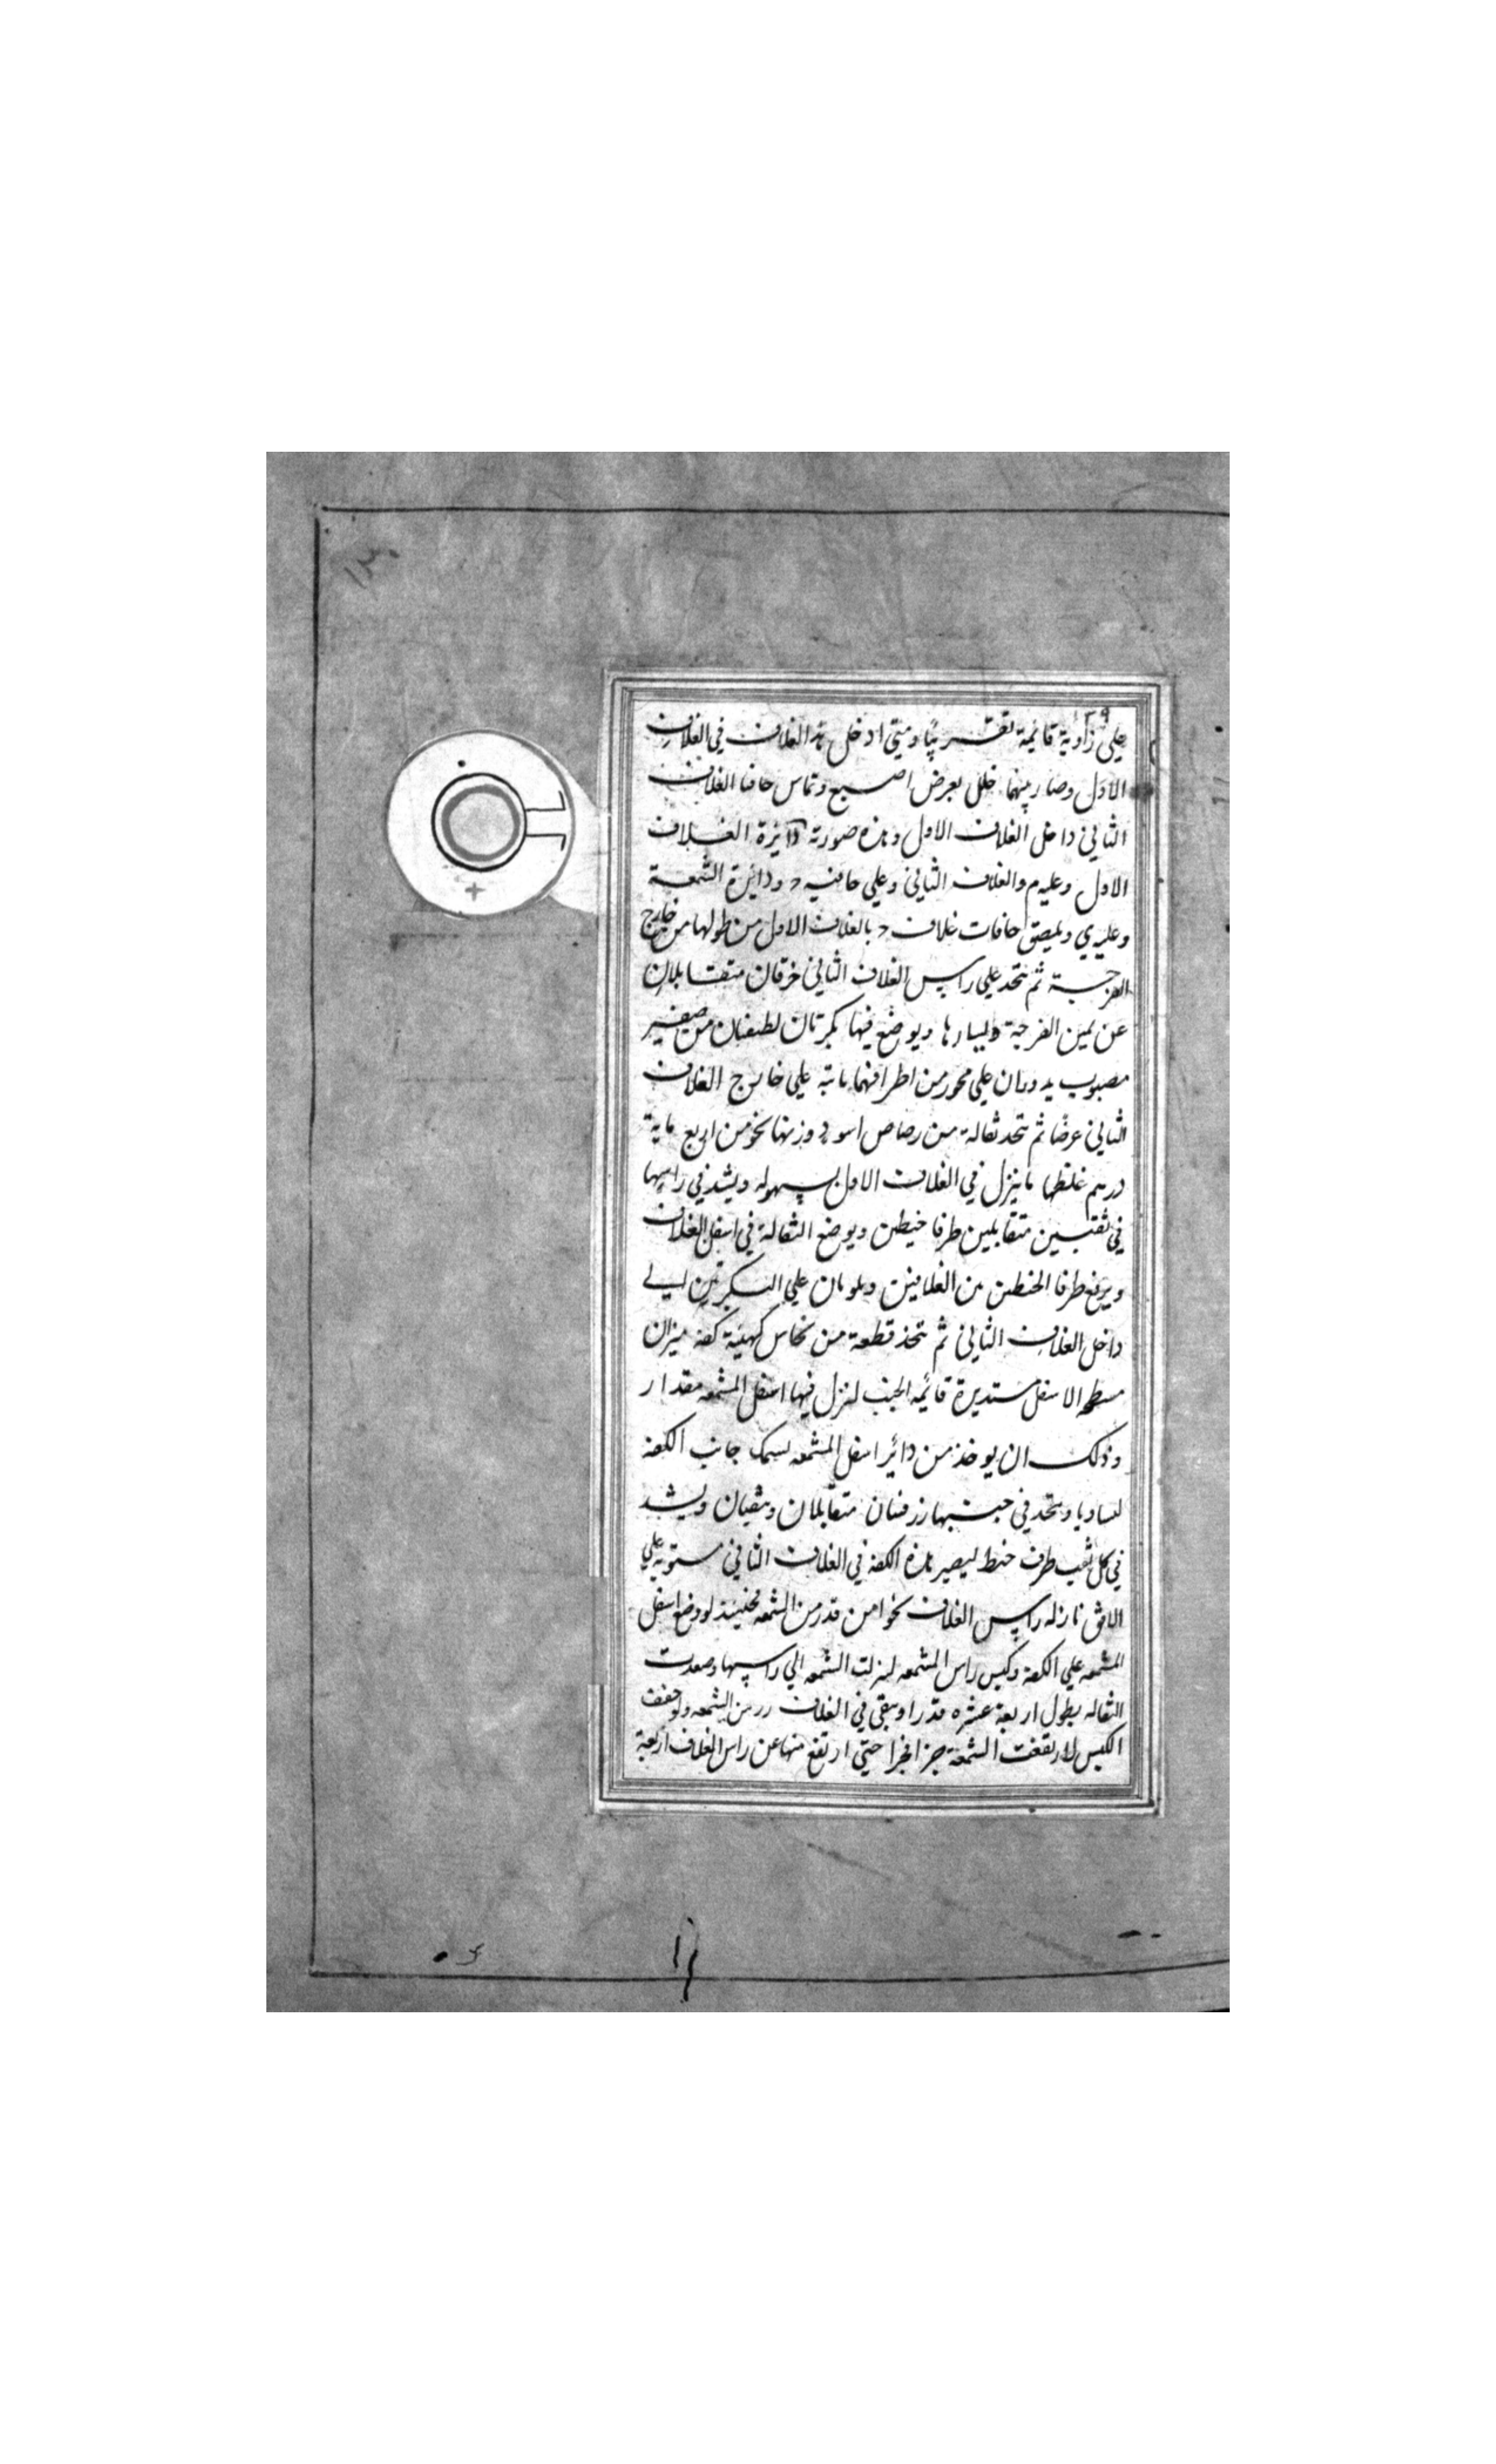 ١٣٩
علي زاوية قائمة تقريبًا ومتي ادخل هذا الغلاف في الغلاف
الاول وصار بينهما خلل بعرض اصبع وتماس حافتا الغلاف
الثاني داخل الغلاف الاول وهذه صورته دائرة الغلاف
الاول وعليه م والغلاف الثاني وعلي حافتيه د ودائرة الشمعة
وعليه ي ويلصق حافات غلاف د بالغلاف الاول من طولها من خارج
الفرجة ثم يتخد علي راس الغلاف الثاني خرقان متقابلان
عن يمين الفرجة ويسارها ويوضع فيها بكرتان لطيفتان من صفير
مصبوب يدوران علي محور من اطرافهما ثابتة علي خارج الغلاف
الثاني عرضا ثم يتخد ثقالة من رصاص اسود وزنها نحو من اربع مايه
درهم غلظها ما ينزل في الغلاف الاول بسهوله ويشد في راسها
في ثقبين متقابلين طرفا خيطين ويوضع الثقالة في اسفل الغلاف
ويرفع طرفا الخيطين من الغلافين ويلويان علي البكرتين الي
داخل الغلاف الثاني ثم يتخذ قطعة من نحاس كهيئة كفة ميزان
مسطحه الاسفل مستديرة قائمه الجنب لنزل فيها اسفل الشمعه مقدار
وذلك ان يوخذ من دائر اسفل الشمعه لسمك جانب الكفة
ليساويا ويتخد في جنبها زرفنان متقابلان ويثقبان ويشد
في كل ثقب طرف خيط ليصير هذه الكفة في الغلاف الثاني مستويه علي
الافق نازله راس الغلاف نحوا من قدر من الشمعه فحينئذ لو وضع اسفل
الشمعه علي الكفة وكبس راس الشمعه لنزلت الشمعه الي راسها وصعدت
الثقاله بطول اربعة عشره قدرا ويبقي في الغلاف رر من الشمعه ولو خفف
الكبس لارتفعت الشمعة جزءا فجزءا حتي ارتفع منها عن راس الغلاف اربعة